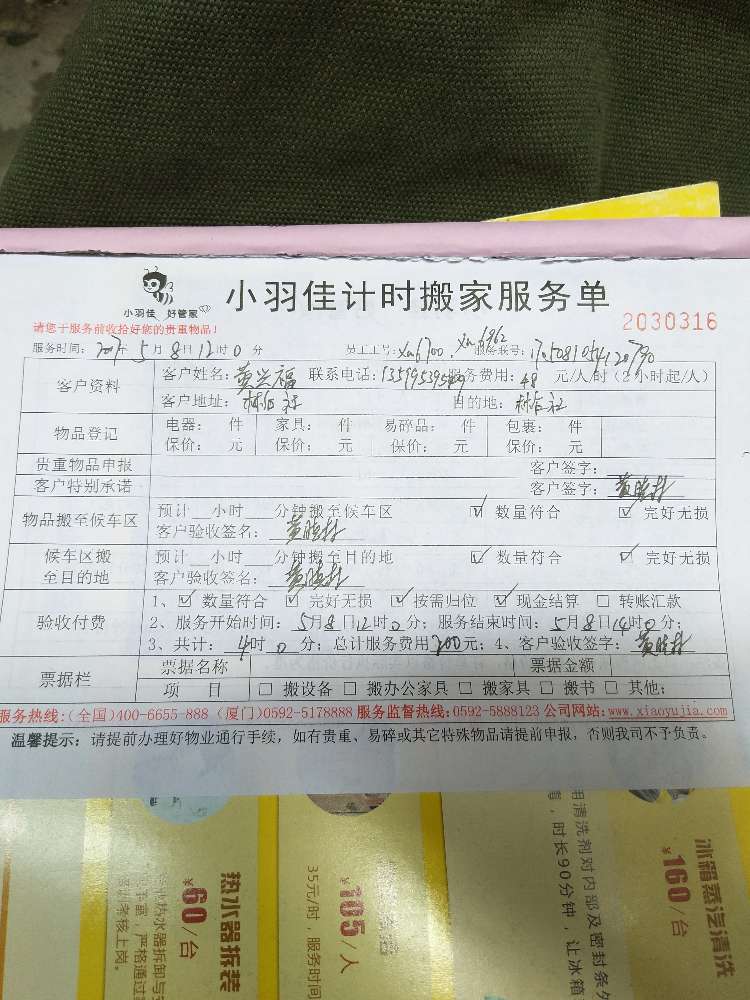 小羽佳 好管家
小羽佳计时搬家服务单
2030316
请您于服务前收拾好您的贵重物品!
服务时间: 2017年5月8日12时0分 员工工号: xm6700. xm6962 服务联号:
客户资料
客户姓名: 黄兴福 联系电话: 服务费用: 48 元/人/时(2小时起/人)
客户地址: 目的地:
物品登记
电器: 件 家具: 件 易碎品: 件 包裹: 件
保价: 元 保价: 元 保价: 元 保价: 元
贵重物品申报 客户签字:
客户特别承诺 客户签字:
物品搬至候车区
预计 小时 分钟搬至候车区 ☑ 数量符合 ☑ 完好无损
客户验收签名:
候车区搬至目的地
预计 小时 分钟搬至目的地 ☑ 数量符合 ☑ 完好无损
客户验收签名:
验收付费
1、☑ 数量符合 ☑ 完好无损 ☑ 按需归位 ☑ 现金结算 □ 转账汇款
2、服务开始时间: 5月8日12时0分; 服务结束时间: 5月8日14时0分;
3、共计: 4时0分; 总计服务费用200元; 4、客户验收签字:
票据栏
票据名称 票据金额
项 目 □ 搬设备 □ 搬办公家具 □ 搬家具 □ 搬书 □ 其他:
服务热线:(全国)400-6655-888 (厦门)0592-5178888 服务监督热线:0592-5888123 公司网站:www.xiaoyujia.com
温馨提示: 请提前办理好物业通行手续, 如有贵重、易碎或其它特殊物品请提前申报, 否则我司不予负责。
冰箱蒸汽清洗
¥160/台
用清洗剂对内部及密封条
时长90分钟, 让冰箱
¥105/人
35元/时, 服务时间
热水器拆装
¥60/台
热水器拆卸与安
严格通过
培训考核上岗。